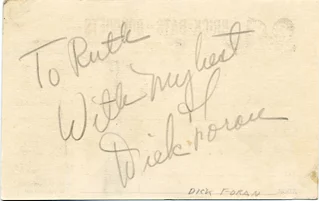 To Ruth
With my best
Dick Foran
DICK FORAN